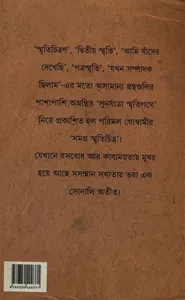 'স্মৃতিচিত্রণ', 'দ্বিতীয় স্মৃতি', 'আমি যাঁদের
দেখেছি', 'পত্রস্মৃতি', 'যখন সম্পাদক
ছিলাম'-এর মতো অসামান্য গ্রন্থগুলির
পাশাপাশি অগ্রন্থিত 'পুনর্যাত্রা স্মৃতিপথে'
নিয়ে প্রকাশিত হল পরিমল গোস্বামীর
'সমগ্র স্মৃতিচিত্র'।
যেখানে রসবোধ আর কাব্যময়তায় মূখর
হয়ে আছে সসম্মান সখ্যতায় ভরা এক
সোনালি অতীত।